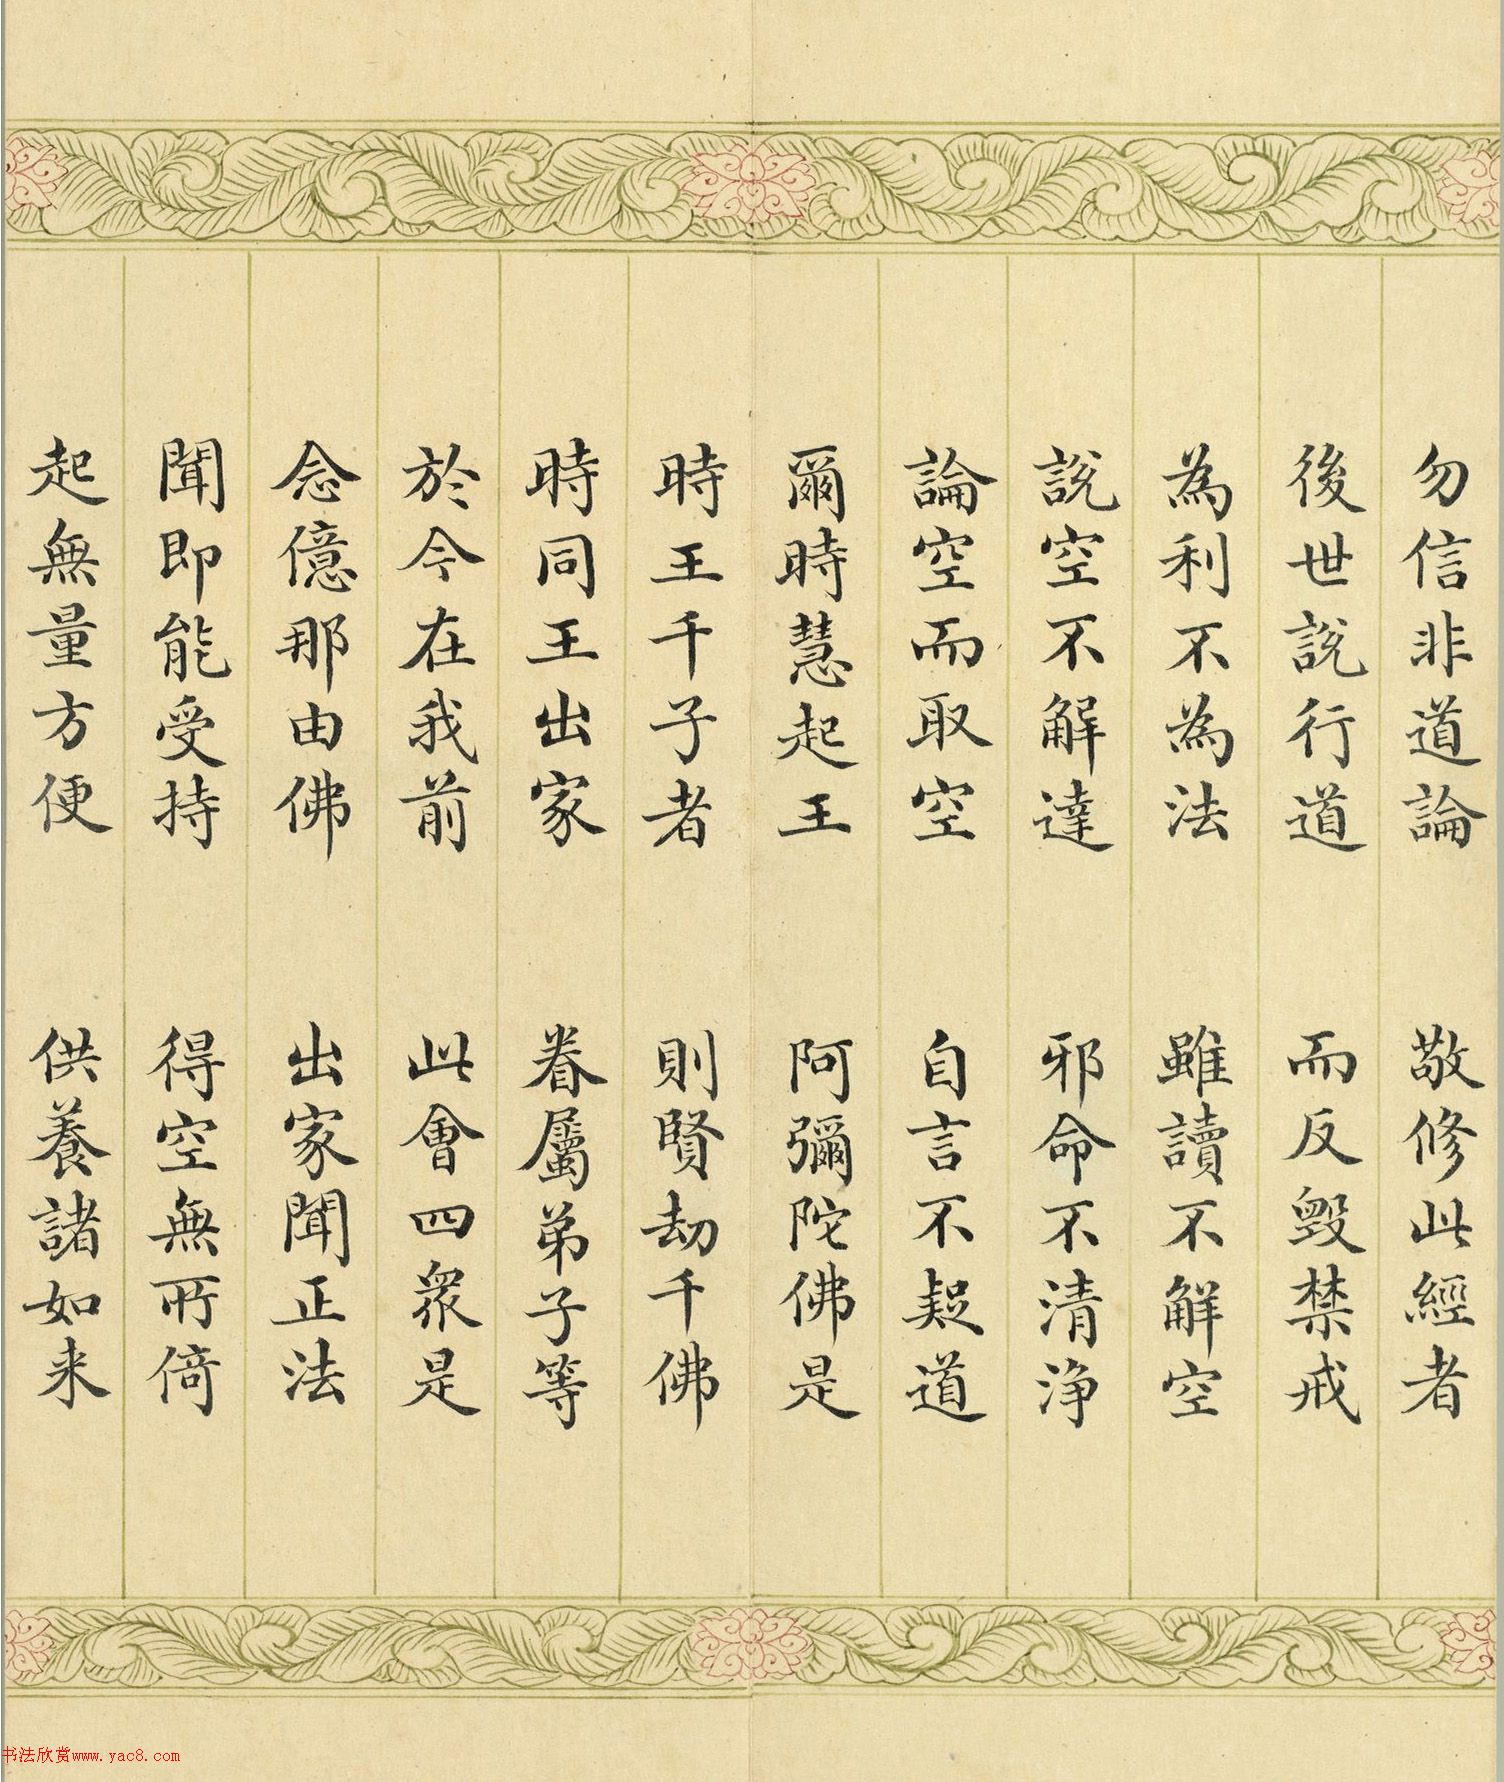 勿信非道論　敬修此經者
後世說行道　而反毀禁戒
為利不為法　雖讀不解空
說空不解達　邪命不清淨
論空而取空　自言不疑道
爾時慧起王　阿彌陀佛是
時王千子者　則賢劫千佛
時同王出家　眷屬弟子等
於今在我前　此會四眾是
念億那由佛　出家聞正法
聞即能受持　得空無所倚
起無量方便　供養諸如来
书法欣赏www.yac8.com